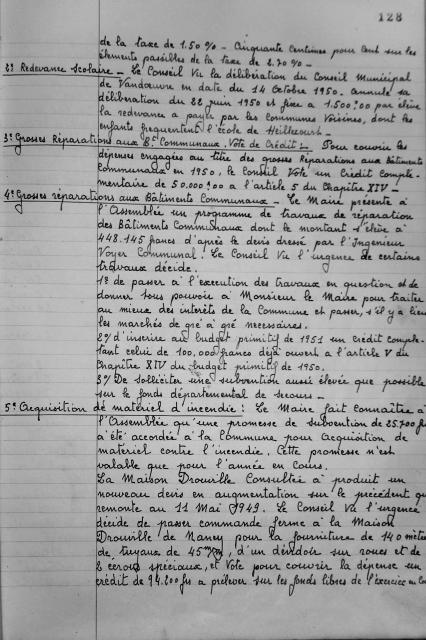 128
de la taxe de 1.50 % - Cinquante Centimes pour Cent sur les
éléments passibles de la taxe de 2.70 % -
2º Redevance Scolaire - Le Conseil Vu la délibération du Conseil Municipal
de Vandoeuvre en date du 14 Octobre 1950. annule sa
délibération du 22 juin 1950 et fixe à 1.500f00 par élève
la redevance à payer par les Communes Voisines, dont les
enfants fréquentent l'école de Heillecourt -
3º Grosses Réparations aux Bts Communaux. Vote de Crédit :- Pour couvrir les
dépenses engagées au titre des grosses Réparations aux bâtiments
Communaux en 1950, le Conseil Vote un Crédit Complé-
mentaire de 50.000f00 à l'article 5 du Chapitre XIV -
4º Grosses réparations aux Bâtiments Communaux - Le Maire présente à
l'Assemblée un programme de travaux de réparation
des Bâtiments Communaux dont le montant s'élève à
448.145 francs d'après le devis dressé par l'Ingénieur
Voyer Communal. Le Conseil Vu l'urgence de certains
travaux décide.
1º de passer à l'exécution des travaux en question et de
donner tous pouvoir à Monsieur le Maire pour traiter
au mieux des intérêts de la Commune et passer, s'il y a lieu
les marchés de gré à gré nécessaires.
2º/ d'inscrire au budget primitif de 1951 un crédit complé-
tant celui de 100.000 francs déjà ouvert à l'article V du
Chapitre XIV du budget primitif de 1950.
3º/ De solliciter une subvention aussi élevée que possible
sur le fonds départemental de secours -
5º Acquisition de matériel d'incendie : Le Maire fait connaître à
l'Assemblée qu'une promesse de subvention de 25.700 frs
a été accordée à la Commune pour Acquisition de
matériel contre l'incendie. Cette promesse n'est
valable que pour l'année en Cours.
La Maison Drouville Consultée a produit un
nouveau devis en augmentation sur le précédent qui
remonte au 11 Mai 1949. Le Conseil Vu l'urgence
décide de passer commande ferme à la Maison
Drouville de Nancy pour la fourniture de 140 mètres
de tuyaux de 45 m/m, d'un dévidoir sur roues et de
2 spéciaux, et Vote pour couvrir la dépense un
crédit de 94.200 frs à prélever sur les fonds libres de l'exercice en